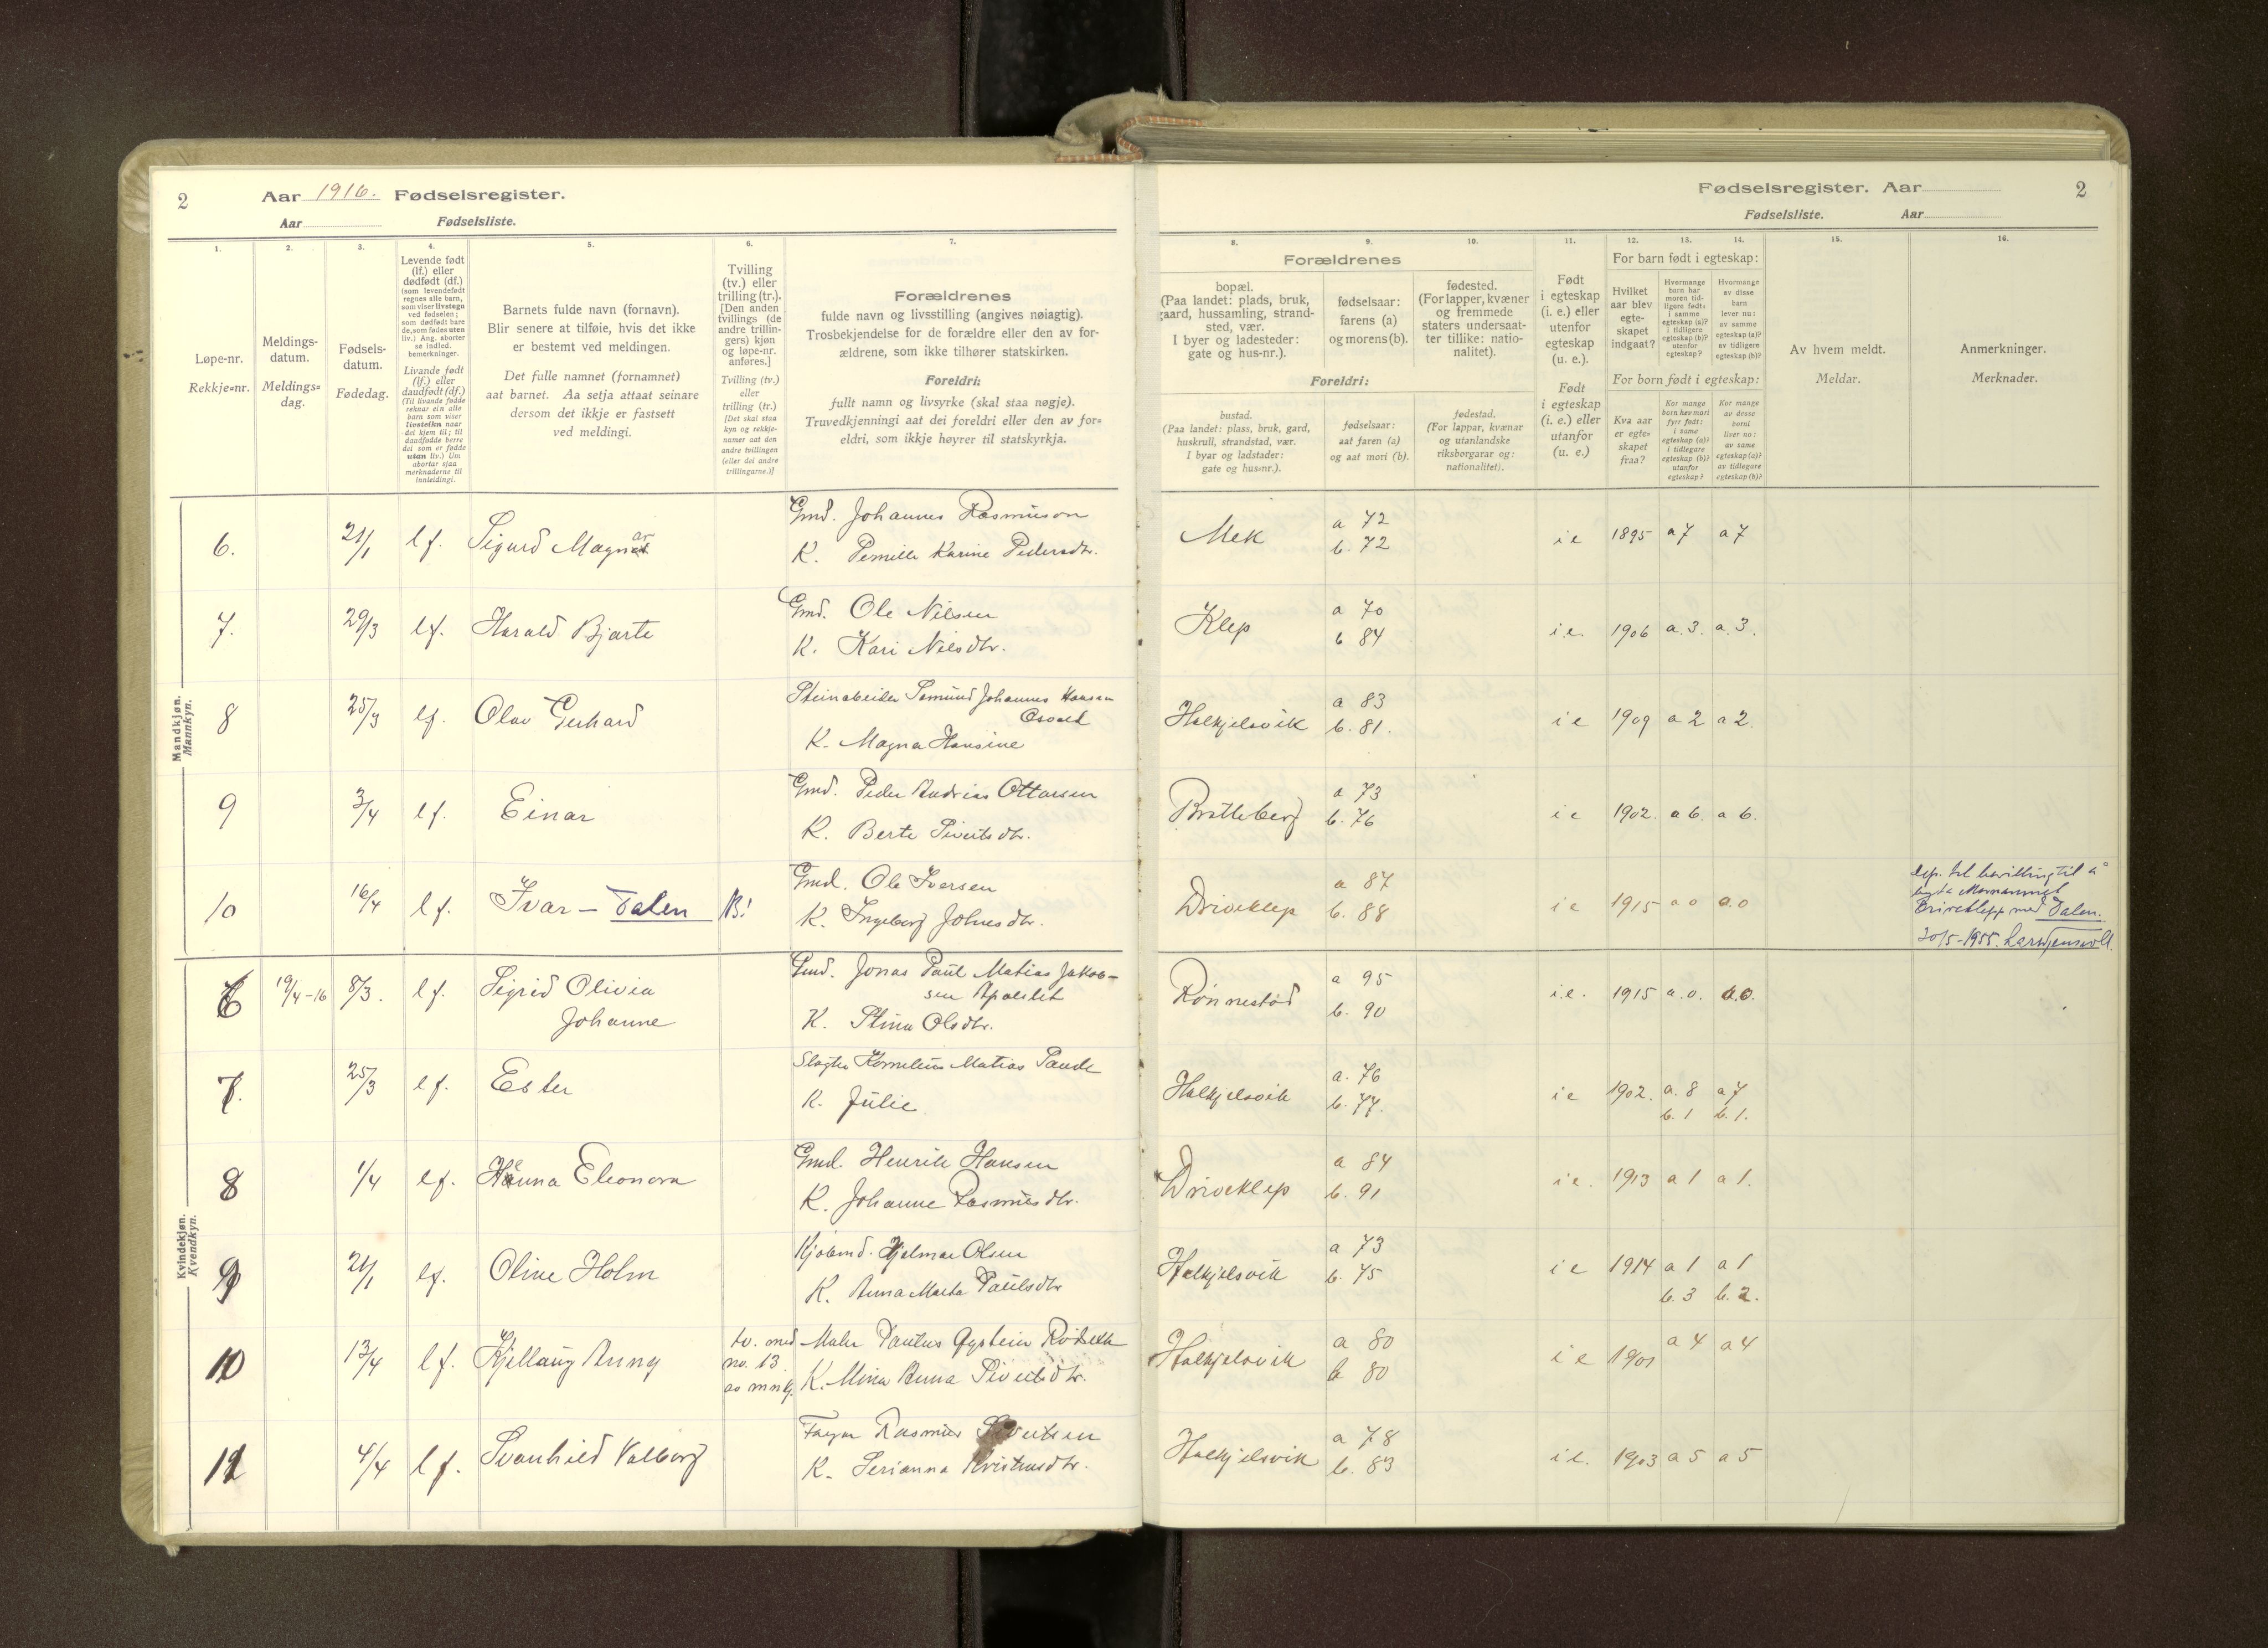 2
Aar 1916. Fødselsregister.
Aar Fødselsliste.
1.
Løpe-nr.
Rekkje-nr.
2.
Meldings-
datum.
Meldings-
dag.
3.
Fødsels-
datum.
Fødedag.
4.
Levende født
(lf.) eller
dødfødt (df.)
(som levendefødt
regnes alle barn,
som viser livstegn
ved fødselen;
som dødfødt bare
de, som fødes uten
liv.) Ang. aborter
se indled.
bemerkninger.
Livande født
(lf.) eller
daudfødt (df.)
(Til livande fødde
reknar ein alle
barn som viser
livsteikn naar
dei kjem til; til
daudfødde berre
dei som er fødde
utan liv.) Um
abortar sjaa
merknaderne til
innleidingi.
5.
Barnets fulde navn (fornavn).
Blir senere at tilføie, hvis det ikke
er bestemt ved meldingen.
Det fulle namnet (fornamnet)
aat barnet. Aa setja attaat seinare
dersom det ikkje er fastsett
ved meldingi.
6.
Tvilling
(tv.) eller
trilling (tr.).
[Den anden
tvillings (de
andre trillin-
gers) kjøn
og løpe-nr.
anføres.]
Tvilling (tv.)
eller
trilling (tr.)
[Det skal staa
kyn og rekkje-
numer aat den
andre tvillingen
(eller dei andre
trillingarne.)]
7.
Forældrenes
fulde navn og livsstilling (angives nøiagtig).
Trosbekjendelse for de forældre eller den av for-
ældrene, som ikke tilhører statskirken.
Foreldri:
fullt namn og livsyrke (skal staa nøgje).
Truvedkjenningi aat dei foreldri eller den av for-
eldri, som ikkje høyrer til statskyrkja.
Mandkjøn.
Mannkyn.
6. 21/1 lf. Sigurd Magnar Gmd. Johannes Rasmusson
K. Pernille Karine Pedersdtr.
7. 29/3 lf. Harald Bjarte Gmd. Ole Nilsen
K. Kari Nilsdtr.
8 25/3 lf. Olav Gerhard Steinarbeider Semund Johannes Hansen
Osvold
K. Magna Hansine
9 3/4 lf. Einar Gmd. Peder Andrias Ottarsen
K. Berte Sivertsdtr.
10 16/4 lf. Ivar – Dalen B! Gmd. Ole Iversen
K. Ingeborg Johnsdtr.
Kvindekjøn.
Kvendkyn.
6 19/4-16 8/3. lf. Sigrid Olivia Gmd. Jonas Paul Matias Jakob-
Johanne sen Apalset
K. Stina Olsdtr.
7. 25/3 lf. Ester Slagter Kornelius Matias Paude
K. Julie
8 1/4 lf. Hanna Eleonora Gmd. Henrik Hansen
K. Johanne Rasmusdtr.
9 21/1 lf. Oline Holm Kjøbmd. Hjalmar Olsen
K. Anna Marta Paulsdtr
10 13/4 lf. Kjellaug Anny tv. med Maler Paulus Øystein Rødseth
no. 13
av mnkj. K. Mina Anna Sivertsdtr.
11 4/4 lf. Svanhild Valborg Farger Rasmus Sivertsen
K. Serianna Kristensdtr.
Fødselsregister. Aar 2
Fødselsliste. Aar
Forældrenes
8.
bopæl.
(Paa landet: plads, bruk,
gaard, hussamling, strand-
sted, vær.
I byer og ladesteder:
gate og hus-nr.).
9.
fødselsaar:
farens (a)
og morens (b).
10.
fødested.
(For lapper, kvæner
og fremmede
staters undersaat-
ter tillike: natio-
nalitet).
Foreldri:
bustad.
(Paa landet: plass, bruk, gard,
huskrull, strandstad, vær.
I byar og ladstader:
gate og hus-nr.).
fødselsaar:
aat faren (a)
og aat mori (b).
fødestad.
(For lappar, kvænar
og utanlandske
riksborgarar og:
nationalitet).
11.
Født
i egteskap
(i. e.) eller
utenfor
egteskap
(u. e.).
Født
i egteskap
(i. e.) eller
utanfor
(u. e.)
12. 13. 14.
For barn født i egteskap:
Hvilket
aar blev
egte-
skapet
indgaat?
Hvormange
barn har
moren tid-
ligere født:
i samme
egteskap (a)?
i tidligere
egteskap (b)?
utenfor
egteskap?
Hvormange
av disse
barn
lever nu:
av samme
egteskap (a)?
av tidligere
egteskap (b)?
For born født i egteskap:
Kva aar
er egte-
skapet
fraa?
Kor mange
born hev mori
fyrr født:
i same
egteskap (a)?
i tidlegare
egteskap (b)?
utanfor
egteskap?
Kor mange
av desse
borni
liver no:
av same
egteskap (a)?
av tidlegare
egteskap (b)?
15.
Av hvem meldt.
Meldar.
16.
Anmerkninger.
Merknader.
Mek a 72 i e 1895 a 7 a 7
b. 72
Klep a 70 i.e. 1906 a. 3. a. 3.
b 84
Halkjelsvik a 83 i e 1909 a 2 a 2.
b. 81.
Bratteberg a 73 i e 1902. a 6. a 6.
b. 76
Driveklep a 87 i e 1915 a 0 a.0
b. 88
til å
Driveklepp med Dalen.
20/5-1955.
Rønnestad a 95 i.e. 1915 a.o. a.o.
b. 90
Halkjelsvik a. 76 i e 1902. a. 8 a 7
b. 77. b. 1 b. 1.
Driveklep a 84 i e. 1913 a 1 a 1.
b. 91
Halkjelsvik a 73 i e 1914 a 1 a 1
b. 75 b. 3 b. 2.
Halkjelsvik a 80 i e 1901 a 4 a 4
b 80
Halkjelsvik a 78 i e. 1903 a 5 a 5
b. 83